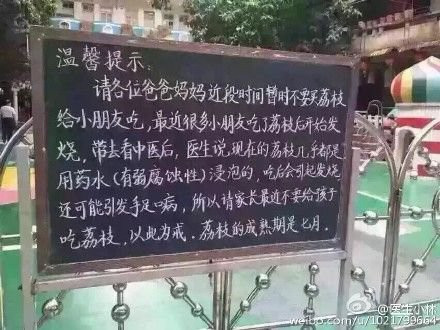 温馨提示：
请各位爸爸妈妈近段时间暂时不要买荔枝
给小朋友吃，最近很多小朋友吃了荔枝后开始发
烧，带去看中医后，医生说现在的荔枝几乎都是
用药水（有强腐蚀性）浸泡的，吃后会引起发烧
还可能引发手足口病，所以请家长最近不要给孩子
吃荔枝，以此为戒．荔枝的成熟期是七月．
@医生小林
weibo.com/u/1021799664